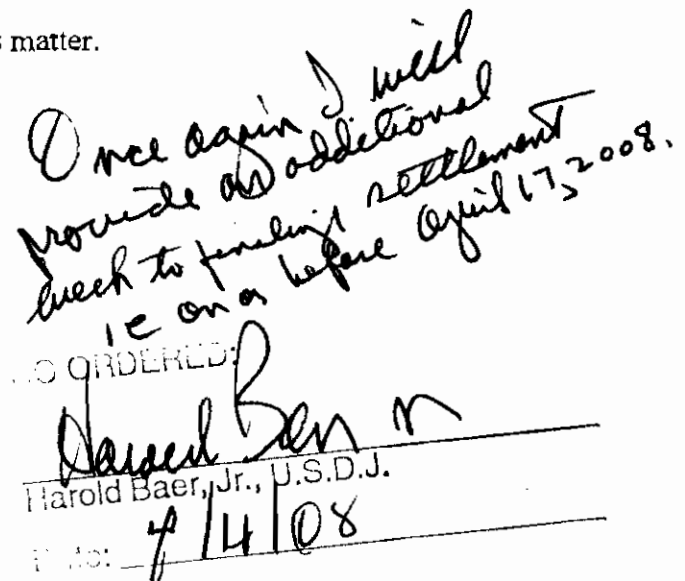 s matter.
Once again I will
provide an additional
week to finalize settlement
ie on or before April 17, 2008.
SO ORDERED:
Harold Baer Jr
Harold Baer, Jr., U.S.D.J.
Date: 4/14/08